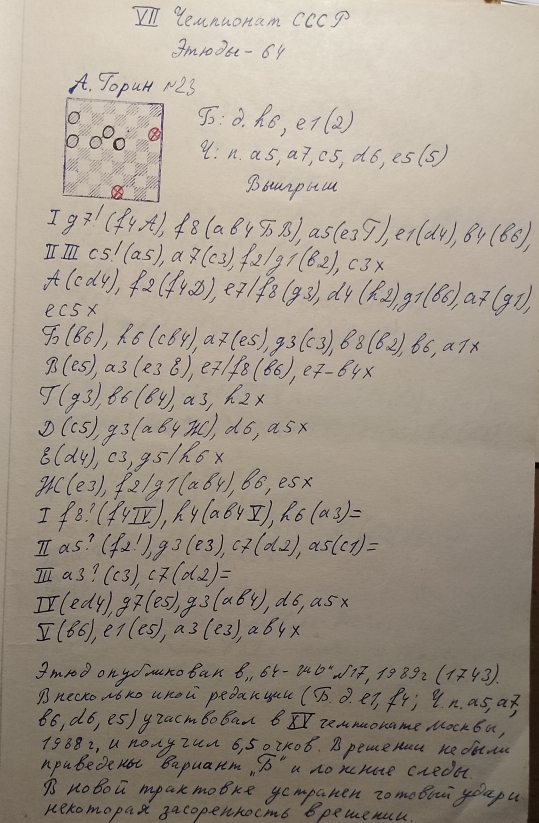 VII Чемпионат СССР
Этюды - 64
А. Горин №23
Б: д. h6, e1 (2)
Ч: п. a5, a7, c5, d6, e5 (5)
Выигрыш
I g7! (f4A), f8 (ab4БВ), a5 (e3Г), e1 (d4), b4 (b6),
II III c5! (a5), a7 (c3), f2/g1 (b2), c3x
А (cd4), f2 (f4Д), e7/f8 (g3), d4 (h2), g1 (b6), a7 (g1),
ec5x
Б (b6), h6 (cb4), a7 (e5), g3 (c3), b8 (b2), b6, a1x
В (e5), a3 (e3 Е), e7/f8 (b6), e7-b4x
Г (g3), b6 (b4), a3, h2x
Д (c5), g3 (ab4 Ж), d6, a5x
Е (d4), c3, g5/h6x
Ж (e3), f2/g1 (ab4), b6, e5x
I f8? (f4 IV), h4 (ab4 V), h6 (a3)=
II a5? (f2!), g3 (e3), c7 (d2), a5 (c1)=
III a3? (c3), c7 (d2)=
IV (ed4), g7 (e5), g3 (ab4), d6, a5x
V (b6), e1 (e5), a3 (e3), ab4x
Этюд опубликован в „64-шо" №17, 1989г (1743).
В несколько иной редакции (Б. д. e1, f4; Ч. п. a5, a7,
b6, d6, e5) участвовал в XV чемпионате Москвы,
1988г, и получил 6,5 очков. В решении не были
приведены вариант „Б" и ложные следы.
В новой трактовке устранен готовый удар и
некоторая засоренность в решении.